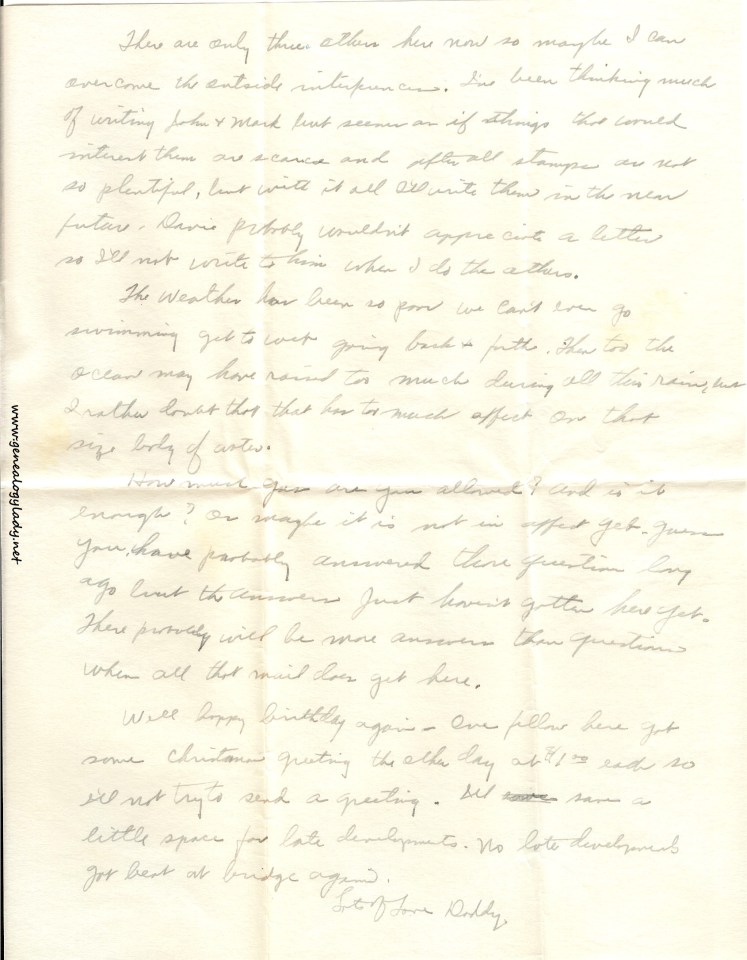 There are only three others here now so maybe I can
overcome the outside interferences. I've been thinking much
of writing John & Mark but seems as if things that would
interest them are scarce and after all stamps are not
so plentiful, but with it all I'll write them in the near
future. David probably wouldn't appreciate a letter
so I'll not write to him when I do the others.
The weather has been so poor we can't even go
swimming get to wet going back & forth. Then too the
ocean may have raised too much during all this rain, but
I rather doubt that that has too much effect on that
size body of water.
How much gas are you allowed? And is it
enough? Or maybe it is not in effect yet. Guess
you have probably answered those question long
ago but the answers just haven't gotten here yet.
There probably will be more answers than questions
when all that mail does get here.
Well happy birthday again - One fellow here got
some Christmas greeting the other day at $1.00 each so
I'll not try to send a greeting. I'll save a
little space for late developments. No late developments
got beat at bridge again.
Lots of Love Daddy.
www.genealogylady.net